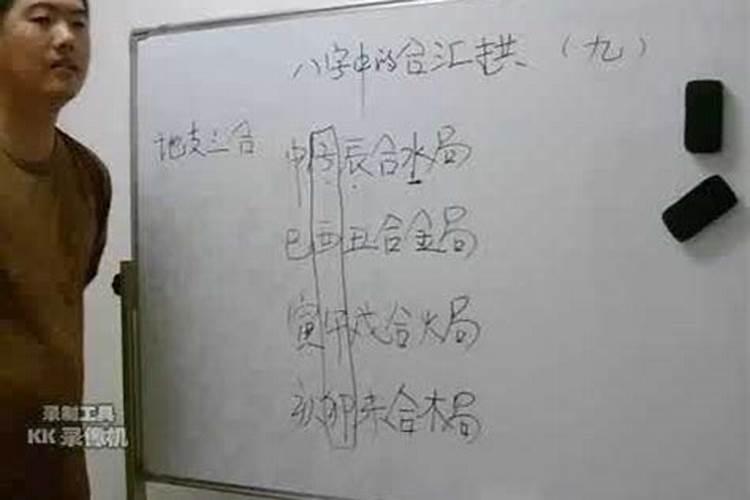 八字中的合汇拱（九）
地支三合
申子辰合水局
巳酉丑合金局
寅午戌合火局
亥卯未合木局
录制工具
KK 录像机